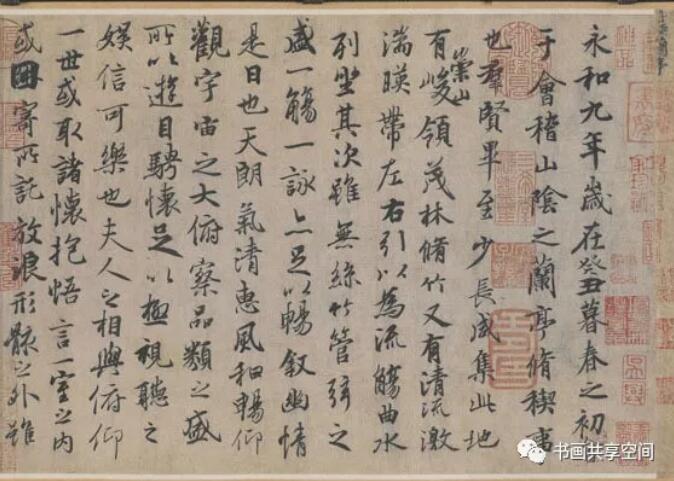 永和九年歲在癸丑暮春之初
于會稽山陰之蘭亭脩稧事
也羣賢畢至少長咸集此地
有崇山峻領茂林脩竹又有清流激
湍暎帶左右引以為流觴曲水
列坐其次雖無絲竹管弦之
盛一觴一詠亦足以暢敘幽情
是日也天朗氣清惠風和暢仰
觀宇宙之大俯察品類之盛
所以遊目騁懷足以極視聽之
娛信可樂也夫人之相與俯仰
一世或取諸懷抱悟言一室之內
或因寄所託放浪形骸之外雖
书画共享空间